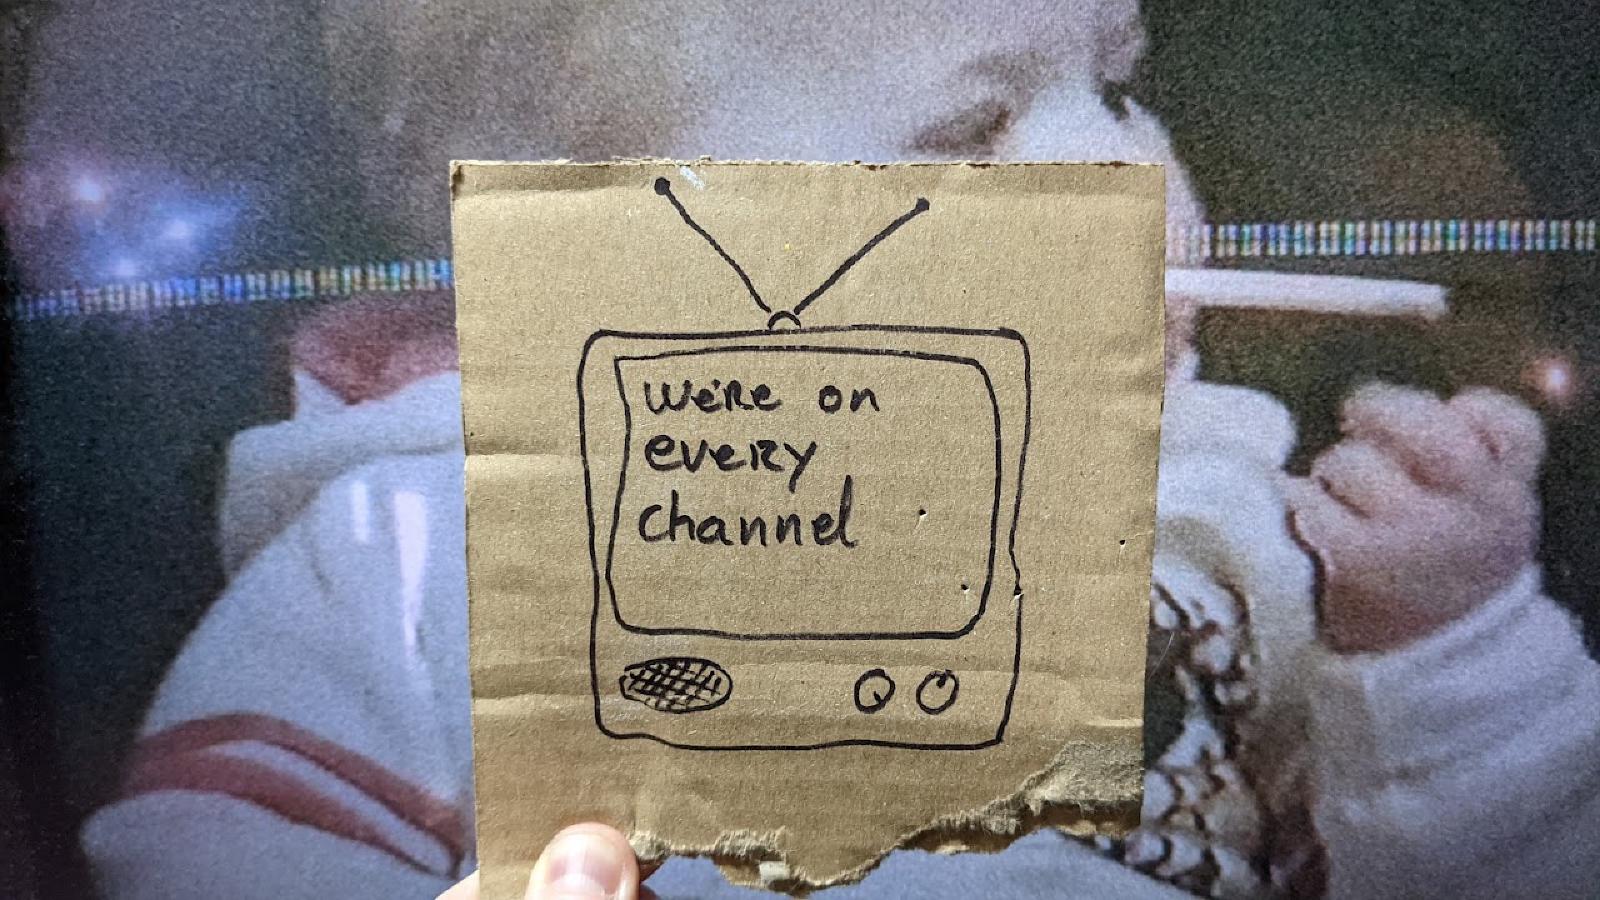 We're on
every
channel